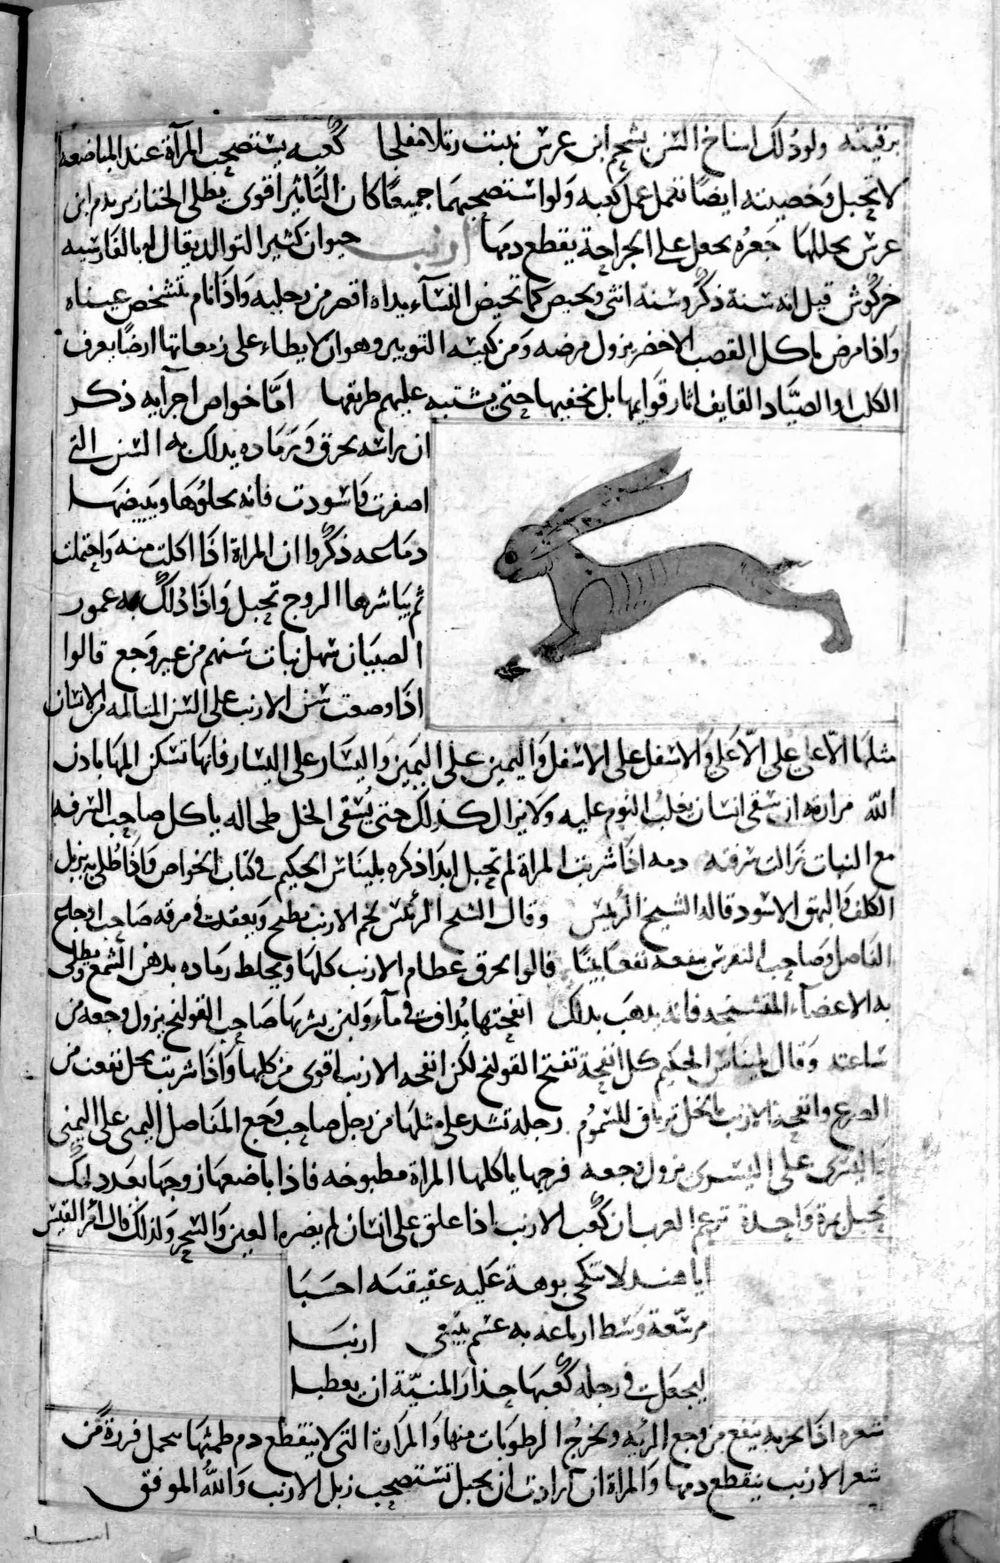 برقبته ولو دلك اسناخ السن بشحم ابن عرس نبتت رتلا مفلجا كعبه يستصحب المرآة عند المباضعه
لا تحبل وخصيته ايضا تعمل عمل كعبه ولو استصحبهما جميعا كان التاثير اقوى يطلى الخنازير بدم ابن
عرس يحللها جعره يجعل على الجراحة يقطع دمها ارنب حيوان كثير التوالد يقال له بالفارسيه
خركوش قيل انه سنة ذكر وسنة انثى ويحيض كما تحيض النسآء يداه اقصر من رجليه واذا نام تشخص عيناه
واذا مرض ياكل القصب الاخضر يزول مرضه ومن كيسه التوبير وهو ان لا يطاء على زمعاتها ارضا يعرف
الكلب او الصياد القايف اثار قوايمها بل يخفيها حتى يشتبه عليهم طريقها اما خواص اجزآيه ذكر
ان راسه يحرق وبرماده يدلك به السن التى
اصفرت واسودت فانه يجلوها ويبيضها
دماغه ذكروا ان المراة اذا اكلت منه واحتملت
ثم يباشرها الزوج تحبل واذا دلك به عمور
الصبيان سهل نبات سنهم من غير وجع قالوا
اذا وضعت سن الارنب على السن المتالمه من الانسان
مثلها الاعلى على الاعلى والاسفل على الاسفل واليمين على اليمين واليسار على اليسار فانها تسكن المها باذن
الله مرارته ان سقى انسان يغلب النوم عليه ولا يزال كذلك حتى يسقى الخل طحاله ياكل صاحب
مع النبات زالت دمه اذا شربت المراة لم تحبل ابدا ذكره بليناس الحكيم فى كتاب الخواص واذا طلى به يزيل
الكلف والبهق الاسود قاله الشيخ الرئيس وقال الشيخ الرئيس لحم الارنب يطبخ ويقعد فى مرقه صاحب اوجاع
المفاصل وصاحب النقرس ينفعه نفعا بينا قالوا يحرق عظام الارنب كلها ويخلط رماده بدهن الشمع ويطلى
به الاعضآء المتشنجه فانه يذهب بذلك انفحتها يداف فى مآء ولبن يشربها صاحب القولنج يزول وجعه من
ساعته وقال بليناس الحكيم كل انفحة تفتح القولنج لكن انفحه الارنب اقوى من كلها واذا شربت بخل نفعت من
الصرع وانفحة الارنب بالخل ترياق للسموم رجله تشد على مثلها من رجل صاحب وجع المفاصل اليمنى على اليمنى
واليسرى على اليسرى يزول وجعه فرجها ياكلها المراة مطبوخه فاذا باضعها زوجها بعد ذلك
تحبل بمرة واحدة تزعم العرب ان كعب الارنب اذا علق على انسان لم يضره العين والسحر ولذلك قال امرؤ القيس
ايا هند لا تنكحى بوهة عليه عقيقته احسبا
مرسعة وسط ارباعه به عسم يبتغى ارنبا
ليجعل فى رجله كعبها حذار المنية ان يعطبا
شعره اذا بخر به ينفع من وجع الريه ويخرج الرطوبات منها والمراة التى لا ينقطع دم طمثها تحمل فرزة من
شعر الارنب ينقطع دمها والمراة ان ارادت ان يحبل تستصحب زبل الارنب والله الموفق